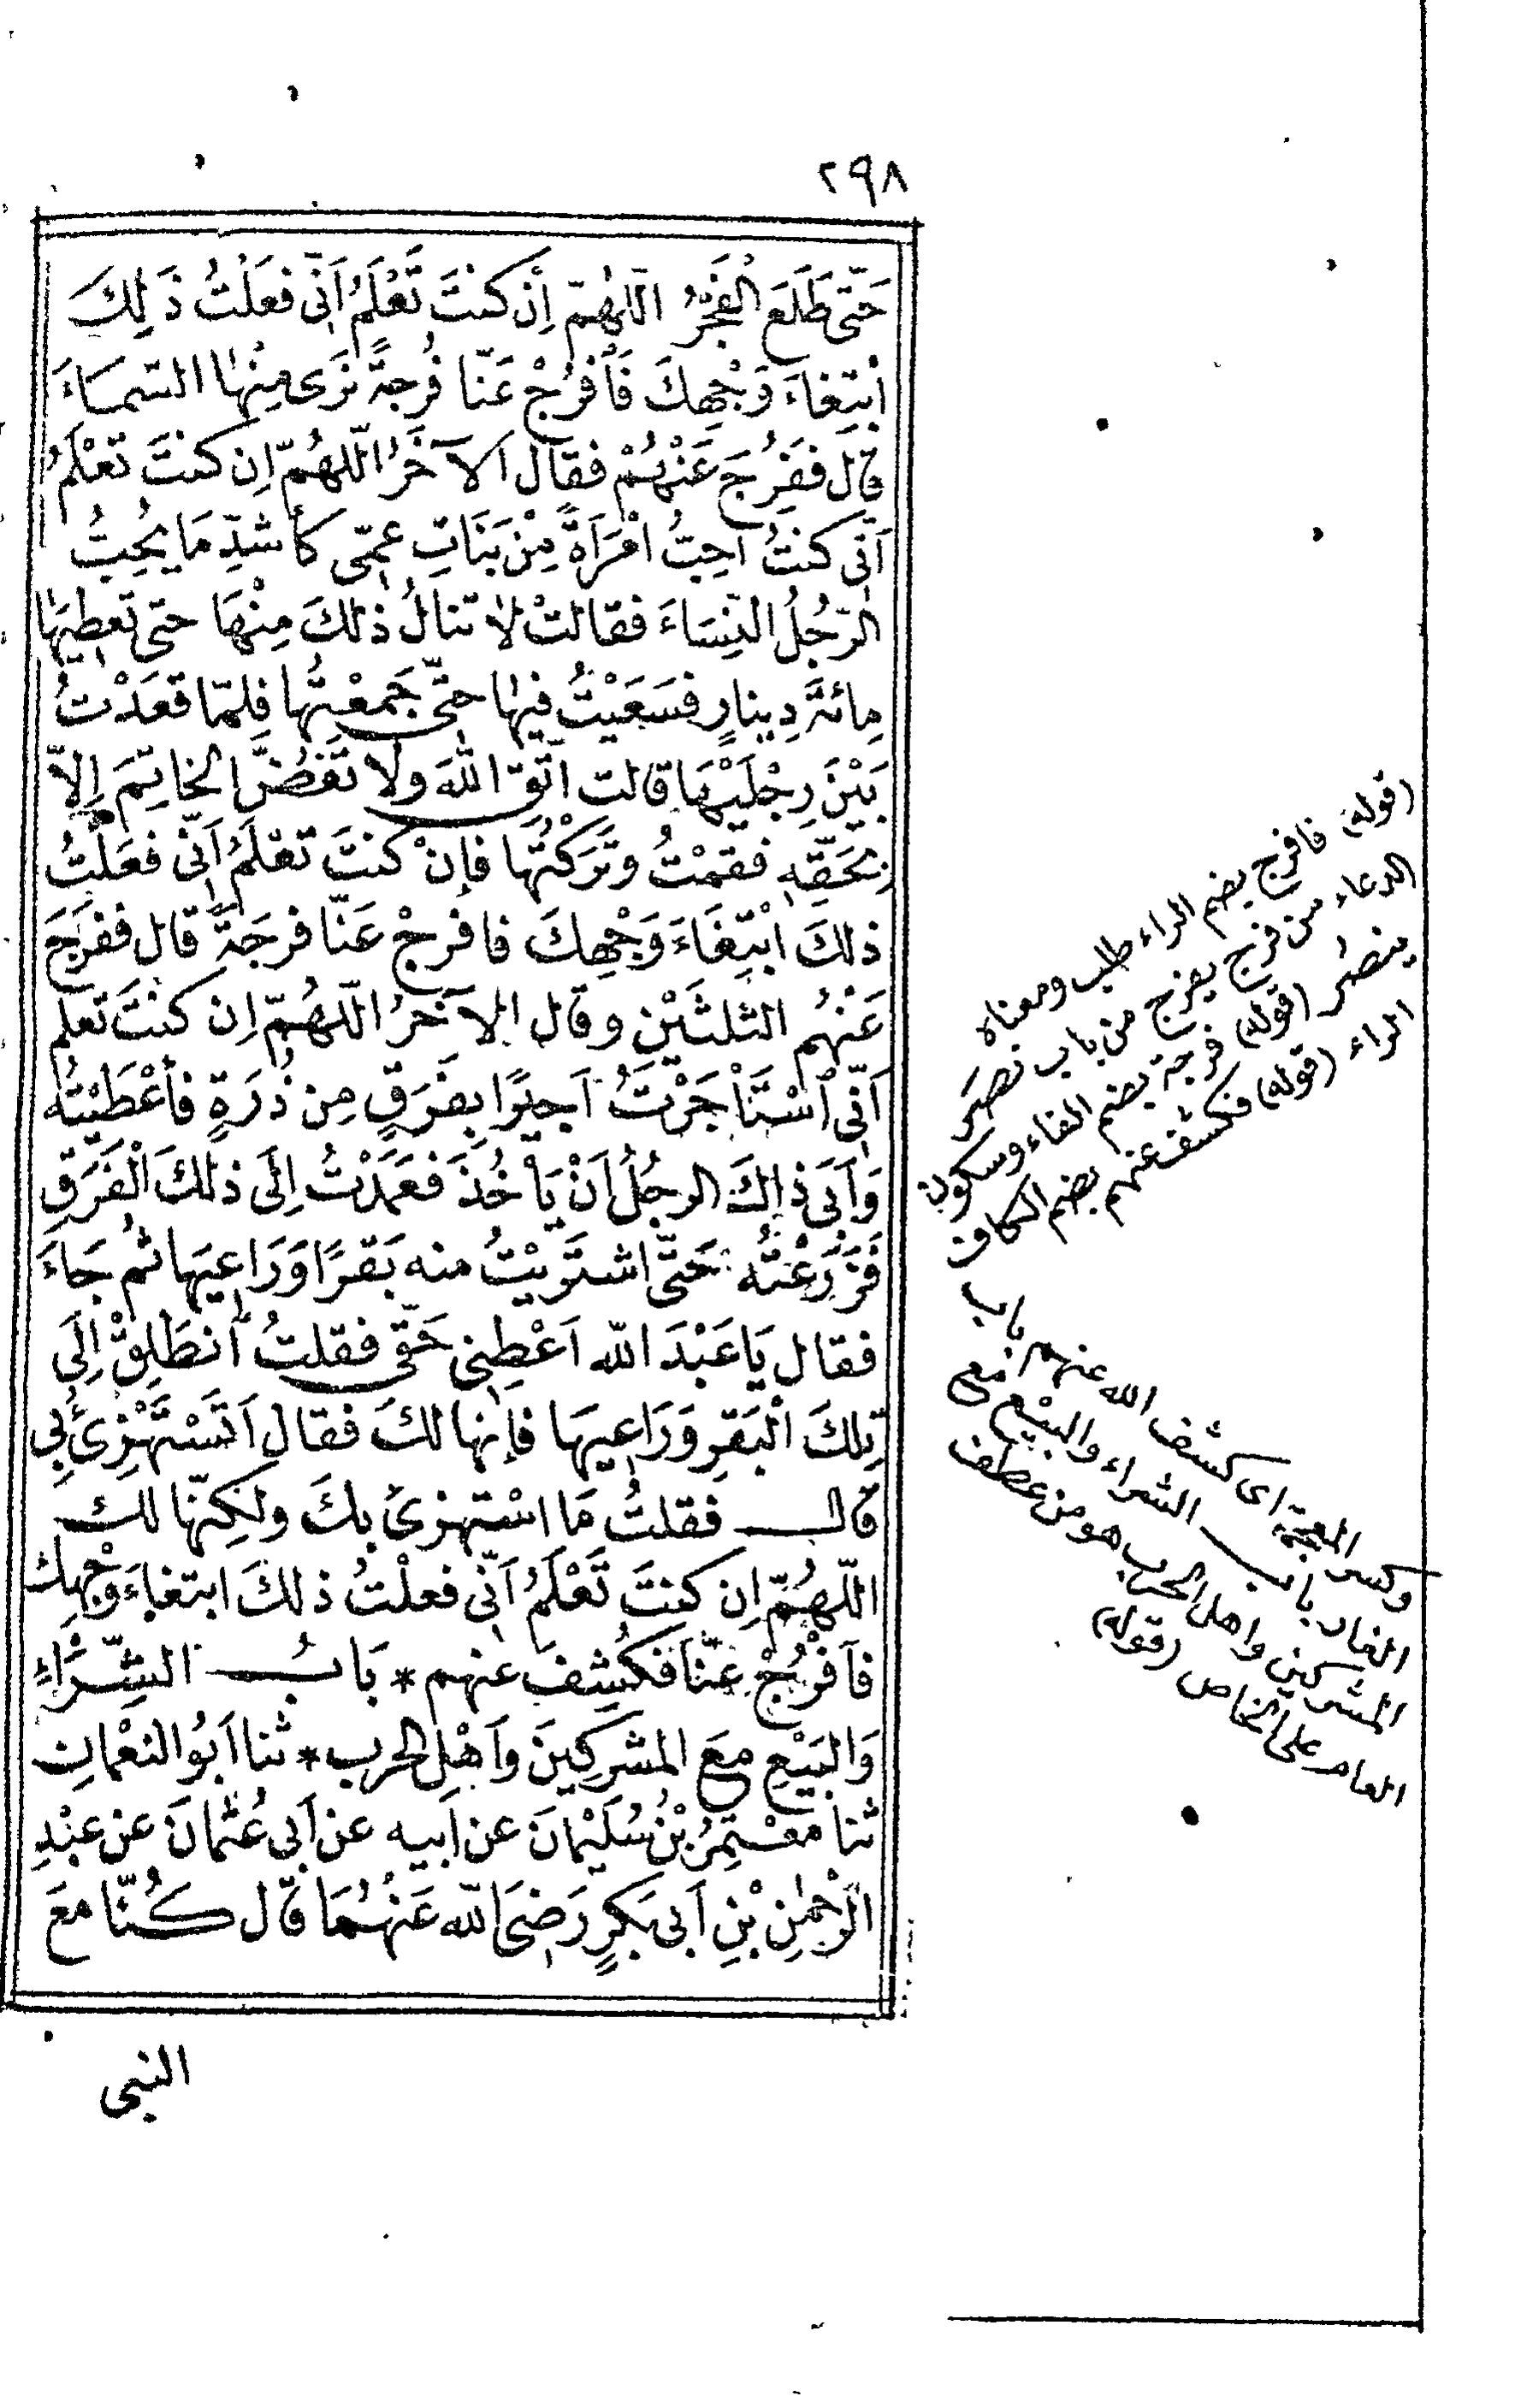 ٢٩٨
حَتّٰى طَلَعَ الْفَجْرُ اَللّٰهُمَّ اِنْ كنتَ تَعْلَمُ اَنّى فَعَلْتُ ذَلِكَ
ابْتِغَاءَ وَجْهِكَ فَافْرُجْ عَنّا فُرجةً نَرَى مِنْهَا السّمَاءَ
قال فَفُرِجَ عَنْهُمْ فقال الآخَرُ اللّهُمّ اِن كنتَ تَعْلَمُ
اَنّى كنتُ اُحِبُّ امْرَاَةً مِنْ بَنَاتِ عمّى كأشَدِّ مَا يُحِبُّ
الرّجُلُ النّسَاءَ فقالتْ لا تنالُ ذلكَ مِنْهَا حتى تُعطِيَهَا
مِائةَ دِينارٍ فسَعَيْتُ فيها حتّى جَمعْتُها فلمّا قعَدْتُ
بَيْنَ رِجْلَيْهَا قالت اتّقِ اللّهَ ولا تَفُضَّ الخاتِمَ إلاّ
بِحَقّهِ فقمْتُ وتَركْتُها فإنْ كنتَ تعْلَمُ اَنّى فعَلْتُ
ذلكَ ابْتِغَاءَ وَجْهِكَ فافْرجْ عَنّا فرجَةً قال ففرَجَ
عَنْهُم الثلثَيْنِ وقال الآخَرُ اللّهُمّ اِن كنتَ تَعلم
اَنّى اسْتَأْجَرْتُ اَجيرًا بِفَرَقٍ مِن ذُرَةٍ فأعْطَيْتُه
وَاَبَى ذَاكَ الرجُلُ اَنْ يَأْخُذَ فعَمَدْتُ اِلَى ذلكَ الْفَرَقِ
فَزَرَعْتُه حَتّى اشتَرَيْتُ منه بَقَرًا وَرَاعِيهَا ثم جَاءَ
فقال يَا عَبْدَ اللّه اَعْطِنى حَقّى فقلتُ انطَلِقْ اِلَى
تِلكَ الْبَقَرِ وَرَاعِيهَا فإنها لكَ فقال اَتَسْتَهْزِئُ بِي
قال فقلتُ مَا اسْتهزئُ بكَ ولكِنّها لك
اللّهُمّ اِن كنتَ تَعْلَمُ اَنّى فعلْتُ ذلكَ ابتغاءَ وَجْهِك
فَافْرُجْ عَنّا فَكُشِفَ عنهم * بَابُ الشِّرَاءِ
وَالبَيْعِ معَ المشركِينَ وَاَهْلِ الحرب * ثنا اَبُو النعْمَانِ
ثنا معْتمِرُ بْنُ سُلَيْمانَ عن اَبيه عن اَبى عُثمانَ عن عبْدِ
الرّحمٰنِ بْنِ اَبى بَكرٍ رَضىَ اللّه عَنْهُمَا قال كُنّا معَ
النبى
(قوله) فافرج بضم الراء طلب ومعناه
الدعاء من فرج يفرج من باب نصر
ينصر (قوله) فرجة بضم الفاء وسكون
الراء (قوله) فكشف عنهم بضم الكاف
وكسر المعجمة اى كشف الله عنهم باب
الغار باب الشراء والبيع مع
المشركين واهل الحرب هو من عطف
العام على الخاص (قوله)